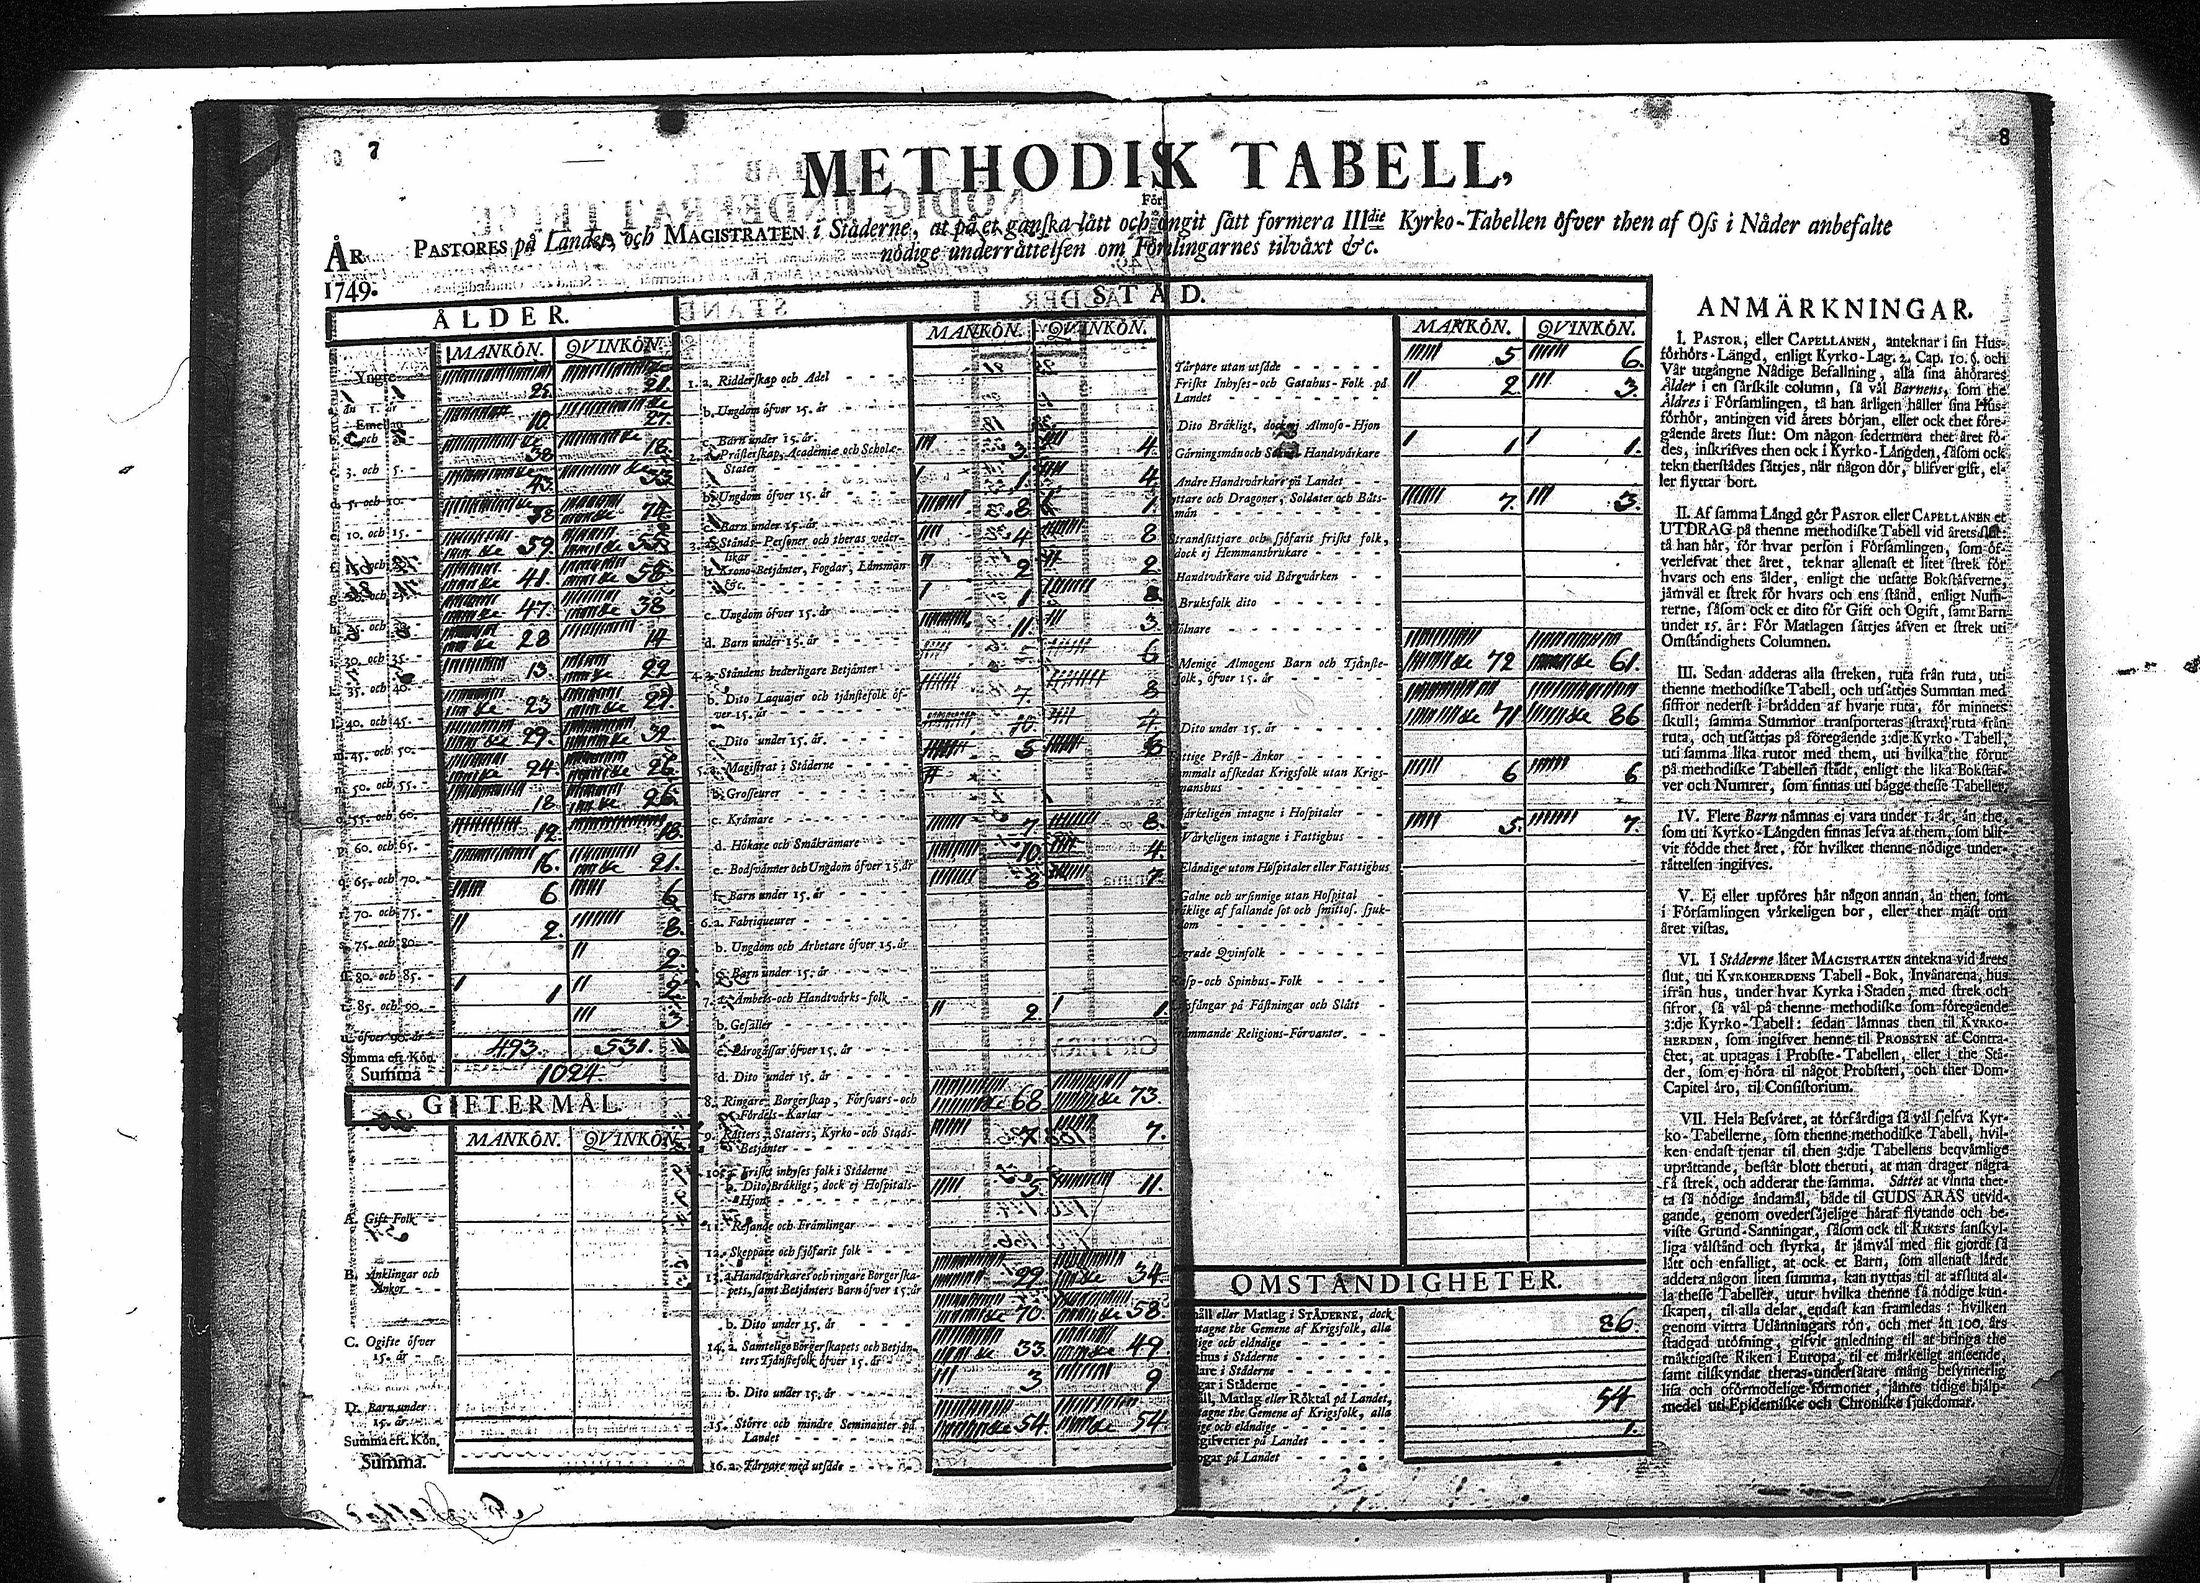 7
8
METHODIK TABELL,
För
PASTORES på Landet, och MAGISTRATEN i Städerne, at på et ganska lätt och ongit sätt formera IIIdie Kyrko-Tabellen öfver then af Oss i Nåder anbefalte
nödige underrättelsen om Församlingarnes tilväxt &c.
ÅR
1749.
ÅLDER.
MANKÖN. QVINKÖN.
Yngre 25. 21.
än 1. år 10. 27.
Emellan
1. och 3. 38 18.
3. och 5. 43. 33.
5. och 10. 38 74
10. och 15. 59. 55.
41. 58
47. 38
28 14
30. och 35. 13. 22
35. och 40. 23 27.
40. och 45. 29. 32
45. och 50. 24. 26.
50. och 55. 18. 26.
55. och 60. 12. 18.
60. och 65. 16. 21.
65. och 70. 6 6
70. och 75. 2. 8.
75. och 80. 2.
80. och 85. 1 2.
85. och 90. 3
öfver 90. år
Summa eft. Kön. 493. 531.
Summa 1024.
GIFTERMÅL.
MANKÖN. QVINKÖN.
A. Gift Folk
B. Änklingar och
Änkor
C. Ogifte öfver
15. år
D. Barn under
15. år
Summa eft. Kön.
Summa.
STÅD.
MANKÖN. QVINKÖN.
1. a. Ridderskap och Adel
b. Ungdom öfver 15. år
c. Barn under 15. år 3. 4.
2. a. Prästerskap, Academiæ och Schole-
Stater 1. 4.
b. Ungdom öfver 15. år 8. 1.
c. Barn under 15. år 4 8
3. a. Stånds-Personer och theras veder-
likar 2 2
b. Krono-Betjänter, Fogdar, Länsmän
&c. 1
c. Ungdom öfver 15. år 11. 3
d. Barn under 15. år 6
4. a. Ståndens hederligare Betjänter 7. 8
b. Dito Laquajer och tjänstefolk öf-
ver 15. år 10. 4
c. Dito under 15. år. 5
5. a. Magistrat i Städerne
b. Grosseurer
c. Krämare 7. 8.
d. Hökare och Småkrämare 10. 4.
e. Bodsvänner och Ungdom öfver 15. år 8 7.
f. Barn under 15. år
6. a. Fabriqueurer
b. Ungdom och Arbetare öfver 15. år
c. Barn under 15. år
7. a. Ämbets-och Handtvärks-folk 2. 1.
b. Gesäller
c. Lärogåssar öfver 15. år
d. Dito under 15. år 68 73.
8. Ringare Borgerskap, Försvars-och
Fördels-Karlar
9. Rätters, Staters, Kyrko-och Stads-
Betjänter 7 7.
10. a. Friskt inhyses folk i Städerne
b. Dito Bräkligt, dock ej Hospitals-
Hjon 5. 11.
11. Resande och Främlingar
12. Skeppare och sjöfarit folk
13. a. Handtvärkares och ringare Borgerska-
pets, samt Betjänters Barn öfver 15. år 29. 34.
b. Dito under 15. år 70. 58.
14. a. Samtelige Borgerskapets och Betjän-
ters Tjänstefolk öfver 15. år 33. 49.
b. Dito under 15. år 3 9
15. Större och mindre Seminanter på
Landet 54. 54.
16. a. Torpare med utsäde
MANKÖN. QVINKÖN.
Torpare utan utsäde 5. 6.
Friskt Inhyses-och Gatuhus-Folk på
Landet 2. 3.
Dito Bräkligt, dock ej Almoso-Hjon
Gärningsmän och Handtvärkare 1 1.
Andre Handtvärkare på Landet
ttare och Dragoner, Soldater och Båts-
män 7. 3.
Strandsittjare och sjöfarit friskt folk,
dock ej Hemmansbrukare
Handtvärkare vid Bärgvärken
Bruksfolk dito
Mölnare
Menige Almogens Barn och Tjänste-
folk, öfver 15. år 72 61.
Dito under 15. år 71 86
attige Präst-Änkor
ammalt afskedat Krigsfolk utan Krigs-
manshus 6 6
Värkeligen intagne i Hospitaler
Värkeligen intagne i Fattighus 5. 7.
Eländige utom Hospitaler eller Fattighus
Galne och ursinnige utan Hospital
räklige af fallande sot och smittos. sjuk-
dom
Lägrade Qvinfolk
Rasp-och Spinhus-Folk
sfångar på Fästningar och Slått
rämmande Religions-Förvanter.
OMSTÄNDIGHETER.
håll eller Matlag i STÄDERNE, dock 86.
ntagne the Gemene af Krigsfolk, alla
tige och eländige
hus i Städerne
are i Städerne
gar i Städerne
äll, Matlag eller Röktal på Landet, 54
tagne the Gemene af Krigsfolk, alla
ige och eländige 1.
gifverier på Landet
ogar på Landet
ANMÄRKNINGAR.
I. PASTOR, eller CAPELLANEN, anteknar i sin Hus-
förhörs-Längd, enligt Kyrko-Lag. 2. Cap. 10. §. och
Vår utgångne Nådige Befallning, alla sina åhörares
Ålder i en särskilt column, så väl Barnens, som the
Äldres i Församlingen, tå han årligen håller sina Hus-
förhör, antingen vid årets början, eller ock thet före-
gående årets slut: Om någon sedermera thet året fö-
des, inskrifves then ock i Kyrko-Längden, såsom ock
tekn therstädes sättjes, når någon dör, blifver gift, el-
ler flyttar bort.
II. Af samma Längd gör PASTOR eller CAPELLANEN et
UTDRAG på thenne methodiske Tabell vid årets slut:
tå han här, för hvar person i Församlingen, som öf-
verlefvat thet året, teknar allenast et litet strek för
hvars och ens ålder, enligt the utsatte Bokstäfverne,
jämväl et strek för hvars och ens stånd, enligt Num-
rerne, såsom ock et dito för Gift och Ogift, samt Barn
under 15. år: För Matlagen sättjes äfven et strek uti
Omständighets Columnen.
III. Sedan adderas alla streken, ruta från ruta, uti
thenne methodiske Tabell, och utsättjes Summan med
siffror nederst i brädden af hvarje ruta, för minnets
skull; samma Summor transporteras straxt ruta från
ruta, och utsättjas på föregående 3:dje Kyrko-Tabell,
uti samma lika rutor med them, uti hvilka the förut
på methodiske Tabellen stådt, enligt the lika Bokstäf-
ver och Numrer, som finnas uti bägge thesse Tabeller.
IV. Flere Barn nämnas ej vara under 1. år, än the,
som uti Kyrko-Längden finnas lefva af them, som blif-
vit födde thet året, för hvilket thenne nödige under-
rättelsen ingifves.
V. Ej eller upföres här någon annan, än then, som
i Församlingen värkeligen bor, eller ther mäst om
året vistas.
VI. I Städerne låter MAGISTRATEN antekna vid årets
slut, uti KYRKOHERDENS Tabell-Bok, Invånarena, hus
ifrån hus, under hvar Kyrka i Staden, med strek och
siffror, så väl på thenne methodiske som föregående
3:dje Kyrko-Tabell: sedan lämnas then til KYRKO-
HERDEN, som ingifver henne til PROBSTEN af Contra-
ctet, at uptagas i Probste-Tabellen, eller i the Stä-
der, som ej höra til något Probsteri, och ther Dom-
Capitel äro, til Consistorium.
VII. Hela Besväret, at förfärdiga så väl sjelfva Kyr-
ko-Tabellerne, som thenne methodiske Tabell, hvil-
ken endast tjenar til then 3:dje Tabellens beqvämlige
uprättande, består blott theruti, at man drager några
få strek, och adderar the samma. Sättet at vinna thet-
ta så nödige ändamål, både til GUDS ÄRAS utvid-
gande, genom ovedersäjelige häraf flytande och be-
viste Grund-Sanningar, såsom ock til RIKETS sanskyl-
liga välstånd och styrka, är jämväl med flit gjordt så
lätt och enfälligt, at ock et Barn, som allenast lärdt
addera någon liten summa, kan nyttjas til at afsluta al-
la thesse Tabeller, utur hvilka thenne så nödige kun-
skapen, til alla delar, endast kan framledas: hvilken
genom vittra Utlänningars rön, och mer än 100. års
stadgad utöfning, gifvit anledning til at bringa the
mäktigaste Riken i Europa, til et märkeligt anseende,
samt tilskyndar theras undersåtare mång besynnerlig
lisa och oförmodelige förmoner, jämte tidige hjälp-
medel uti Epidemiske och Chroniske sjukdomar.